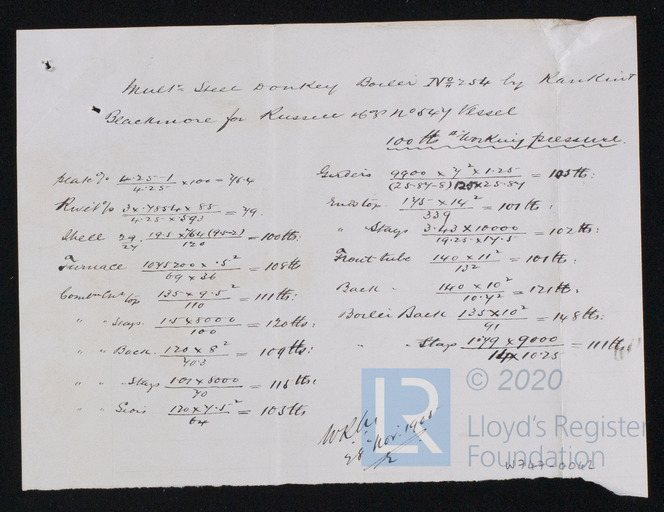 Multr Steel Donkey Boiler No 254 by Rankin &
Blackmore for Russell &Co No 547 Vessel
100 lb Working pressure.
Plate % (4.25-1)/4.25 x 100 = 76.4
Rivet % (3 x .7854 x 85)/(4.25 x .593) = 79.
Shell
= 100 lb:
Furnace (1075200 x .5²)/(69 x 36) = 108 lb
Combn Chr top (135 x 9.5²)/110 = 111 lb:
" " Stays (1.5 x 8000)/100 = 120 lb:
" " Back (120 x 8²)/70.3 = 109 lb:
" " Stays (101 x 8000)/70 = 115 lb:
" " Sides (120 x 7.5²)/64 = 105 lb
Girders (9900 x 7² x 1.25)/((25.87-8)125 x 25.87) = 105 lb:
Ends top (175 x 14²)/339 = 101 lb:
" Stays (3.43 x 10000)/(19.25 x 17.5) = 102 lb:
Front tube (140 x 11²)/13² = 101 lb:
Back " (140 x 10²)/10.7² = 121 lb:
Boiler Back (135 x 10²)/91 = 148 lb:
" " Stays (1.79 x 9000)/(14 x 10.25) = 111 lb:
28 Nov. 1901
© 2020
LR
Lloyd's Register
Foundation
W747-0042